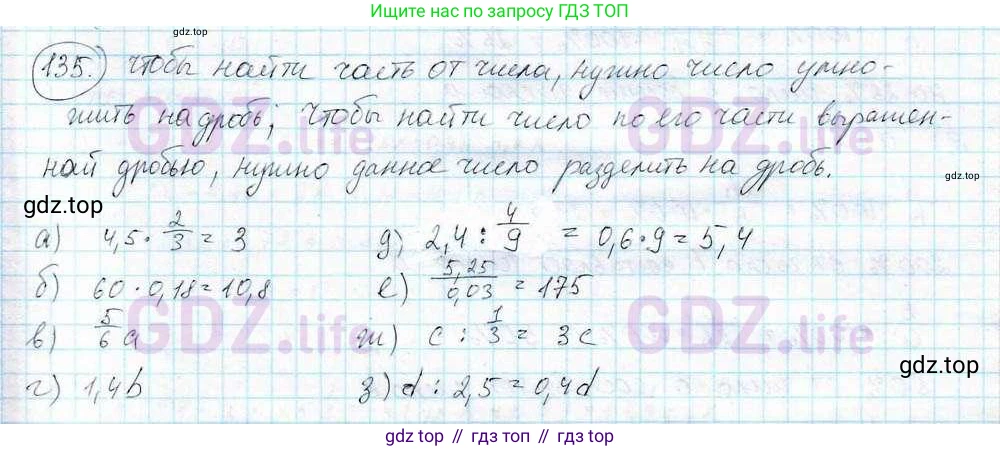 Ищите нас по запросу ГДЗ ТОП
gdz.top
135.) чтобы найти часть от числа, нужно число умно-
жить на дробь; Чтобы найти число по его части выражен-
ной дробью, нужно данное число разделить на дробь.
GDZ.life
GDZ.life
gdz.top
gdz.top
а) 4,5 · 2/3 = 3
д) 2,4 : 4/9 = 0,6·9 = 5,4
б) 60 · 0,18 = 10,8
е) 5,25/0,03 = 175
в) 5/6 a
ж) c : 1/3 = 3c
GDZ.life
GDZ.life
gdz.top
г) 1,4b
з) d : 2,5 = 0,4d
gdz top // гдз топ // gdz.top